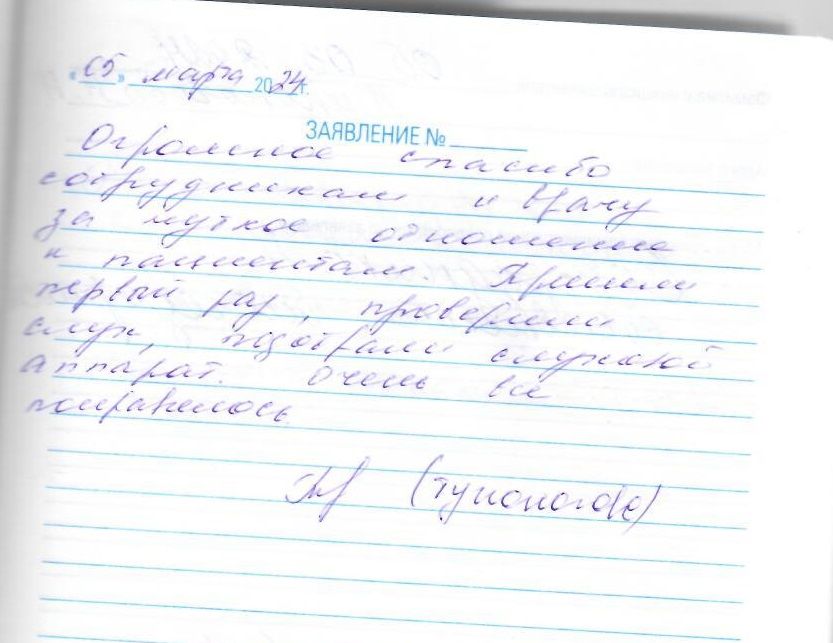 «05» марта 2024г.
ЗАЯВЛЕНИЕ №
Огромное спасибо
сотрудникам и врачу
за чуткое отношение
к пациентам. Пришли
первый раз, проверили
слух, подобрали слуховой
аппарат. Очень все
понравилось.
(Тупоногова)